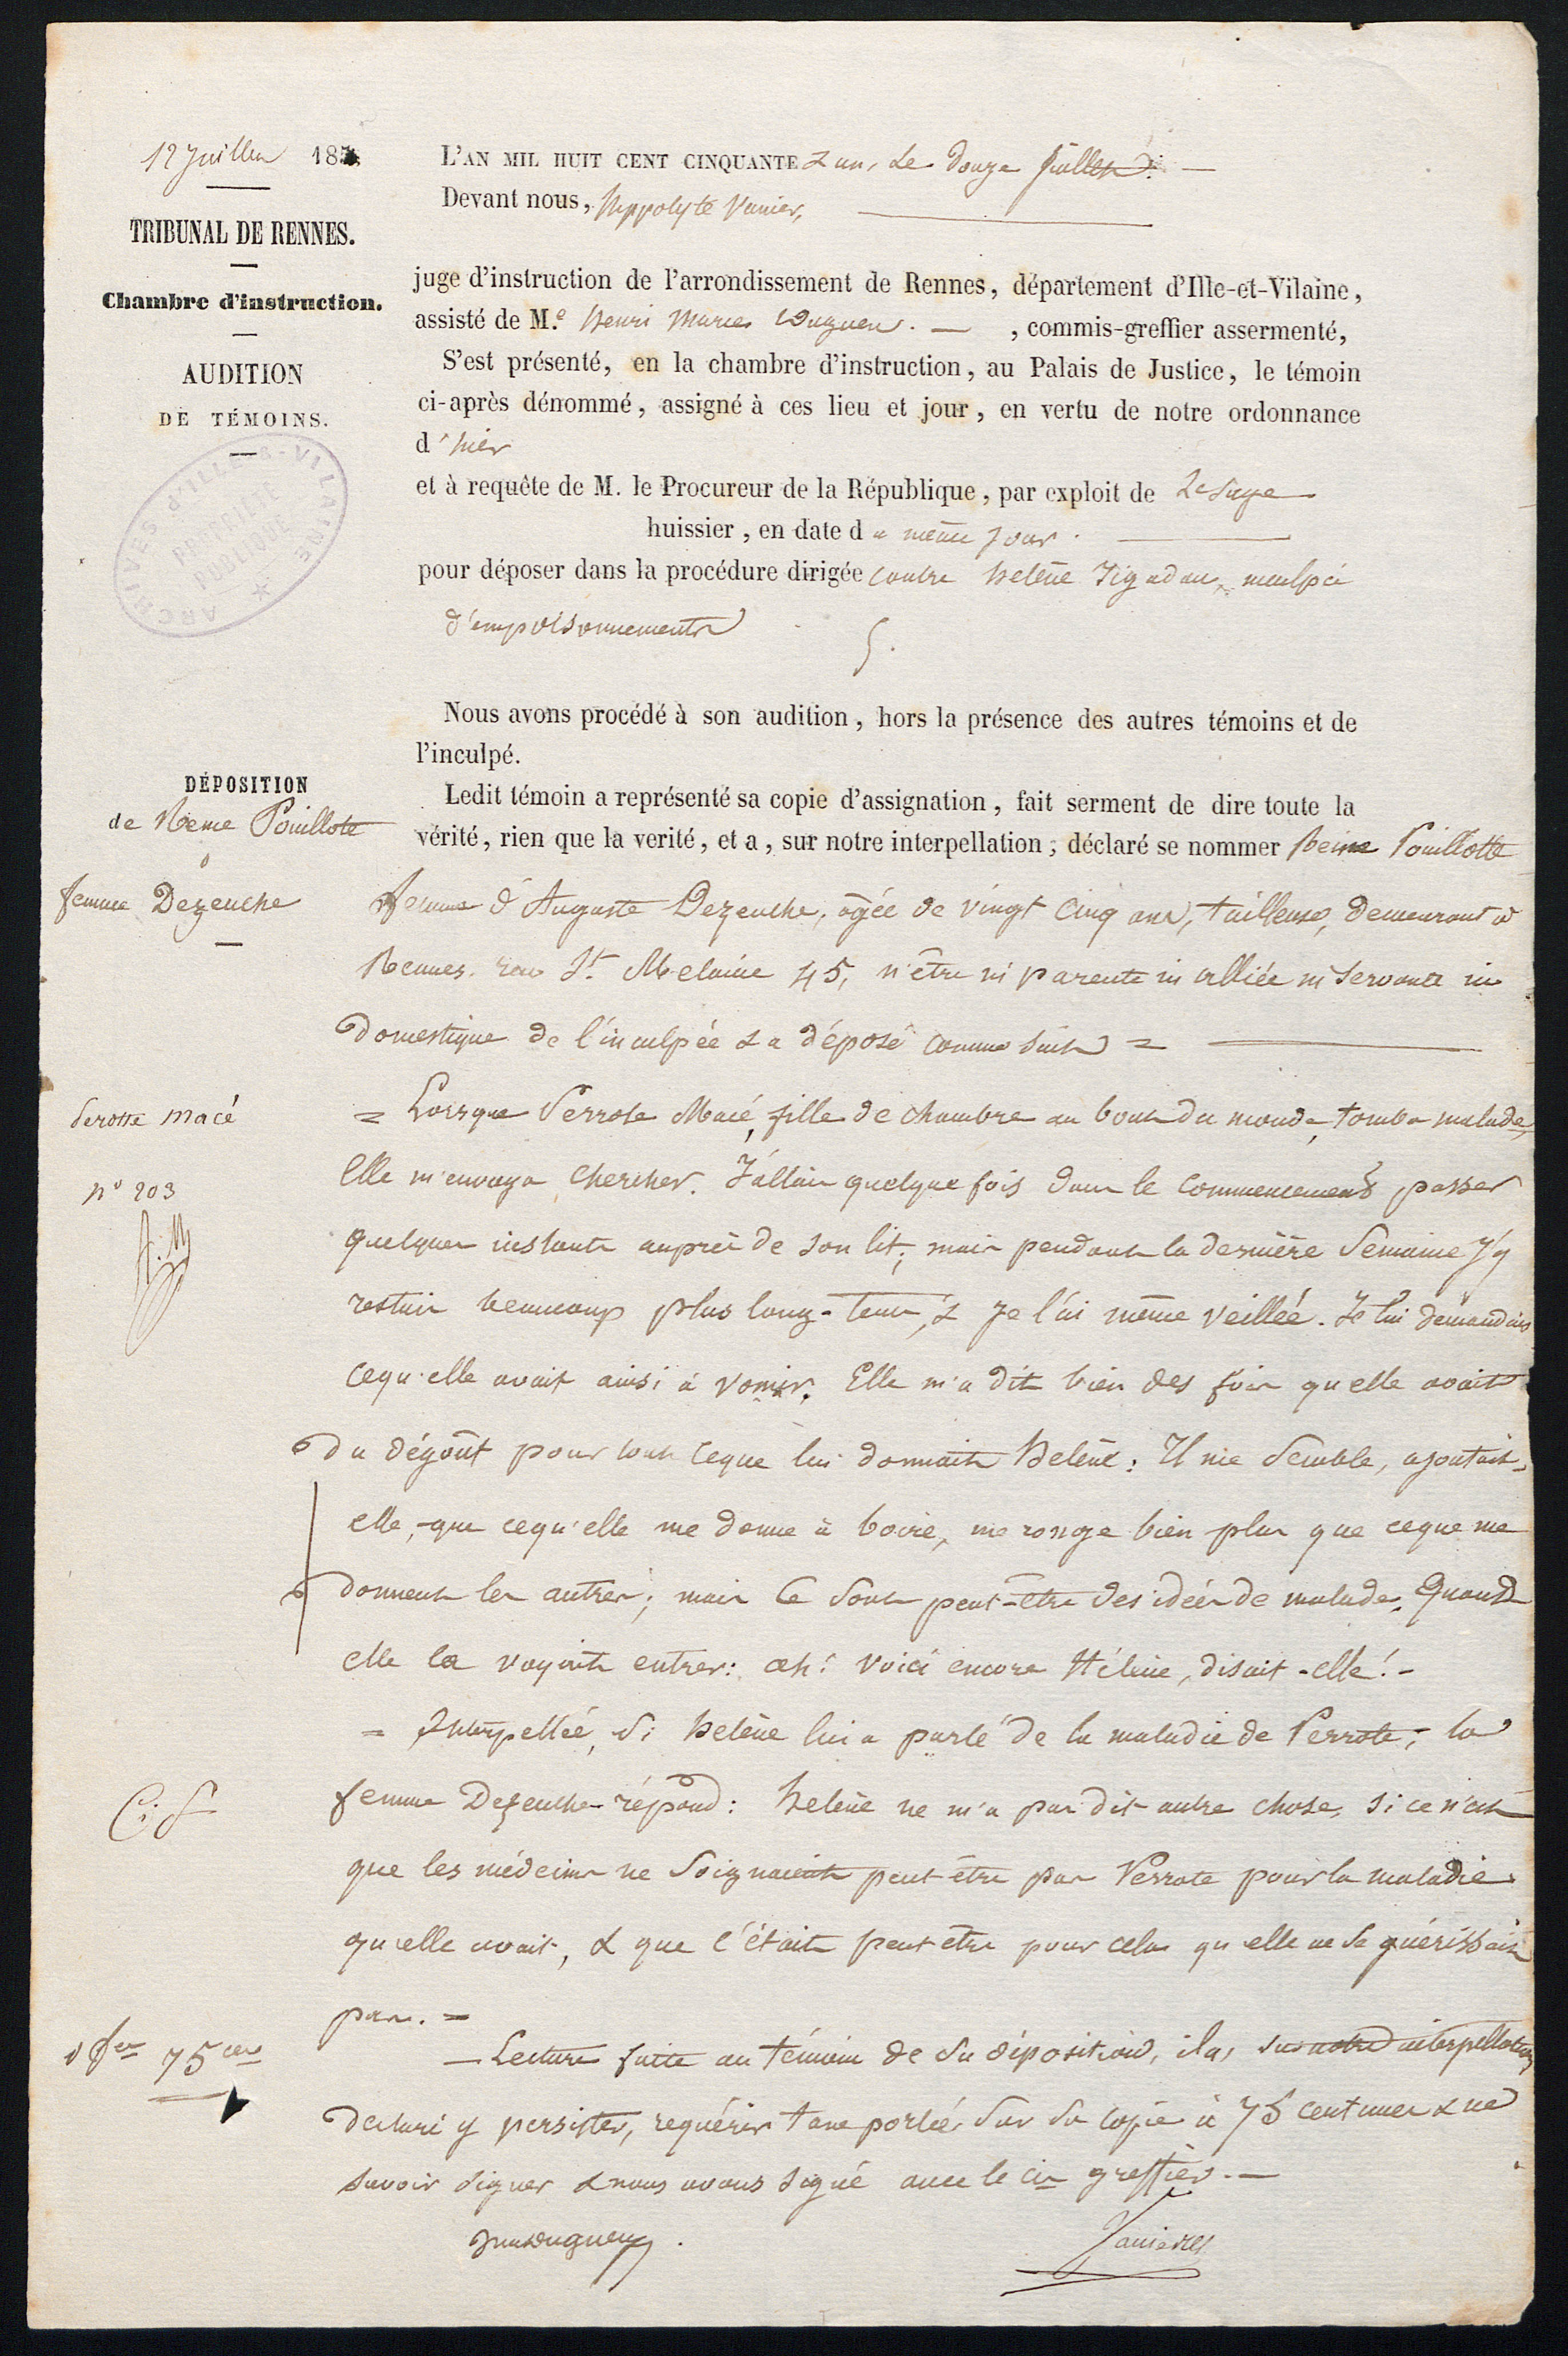 12 Juillet 185
TRIBUNAL DE RENNES.
Chambre d'instruction.
AUDITION
DE TÉMOINS.
ARCHIVES d'ILLE & VILAINE
PROPRIÉTÉ
PUBLIQUE
L'AN MIL HUIT CENT CINQUANTE & un, Le douze Juillet
Devant nous, Hippolyte Vanier,
juge d'instruction de l'arrondissement de Rennes, département d'Ille-et-Vilaine,
assisté de M.e Henri Marie , commis-greffier assermenté,
S'est présenté, en la chambre d'instruction, au Palais de Justice, le témoin
ci-après dénommé, assigné à ces lieu et jour, en vertu de notre ordonnance
d'hier
et à requête de M. le Procureur de la République, par exploit de Le Sage
huissier, en date du même jour.
pour déposer dans la procédure dirigée contre helène Jégadau, inculpée
d'empoisonnements
Nous avons procédé à son audition, hors la présence des autres témoins et de
l'inculpé.
DÉPOSITION
de Reine Pouillote
femme Dezeuche
Ledit témoin a représenté sa copie d'assignation, fait serment de dire toute la
vérité, rien que la verité, et a, sur notre interpellation, déclaré se nommer Reine Pouillotte
femme d'Auguste Dezeuche, âgée de vingt cinq ans, tailleuse, demeurant à
Rennes rue St Melaine 45, n'être ni parente ni alliée ni servante ni
domestique de l'inculpée & a déposé comme suit =
Perotte Macé
n° 203
= Lorsque Perrote Macé, fille de chambre au bout du monde, tomba malade,
Elle m'envoya chercher. J'allais quelque fois dans le commencement passer
quelques instants auprès de son lit; mais pendant la dernière Semaine j'y
restais beaucoup plus long-tems, & je l'ai même veillée. Je lui demandais
cequ'elle avait ainsi à vomir. Elle m'a dit bien des fois qu'elle avait
du dégoût pour tout ceque lui donnait Helène: Il me Semble, ajoutait
elle, que cequ'elle me donne à boire, me ronge bien plus que ceque me
donnent les autres; mais Ce Sont peut-être des idées de malade. Quand
elle la voyait entrer: ah! voici encore Hélène, disait-elle! -
= Interpellée, Si helène lui a parlé de la maladie de Perrote; la
femme Dezeuche répond: helène ne m'a pas dit autre chose, si ce n'est
que les médecins ne Soignaient peut être pas Perrote pour la maladie
qu'elle avait, & que c'était peut être pour cela qu'elle ne se guérissait
pas. =
1 fr 75 ces
— Lecture faite au témoin de sa déposition, il a, sur notre interpellation
déclaré y persister, requérir taxe portée Sur sa copie à 75 centimes & ne
savoir signer & nous avons signé avec le cis greffier. —
Vanier